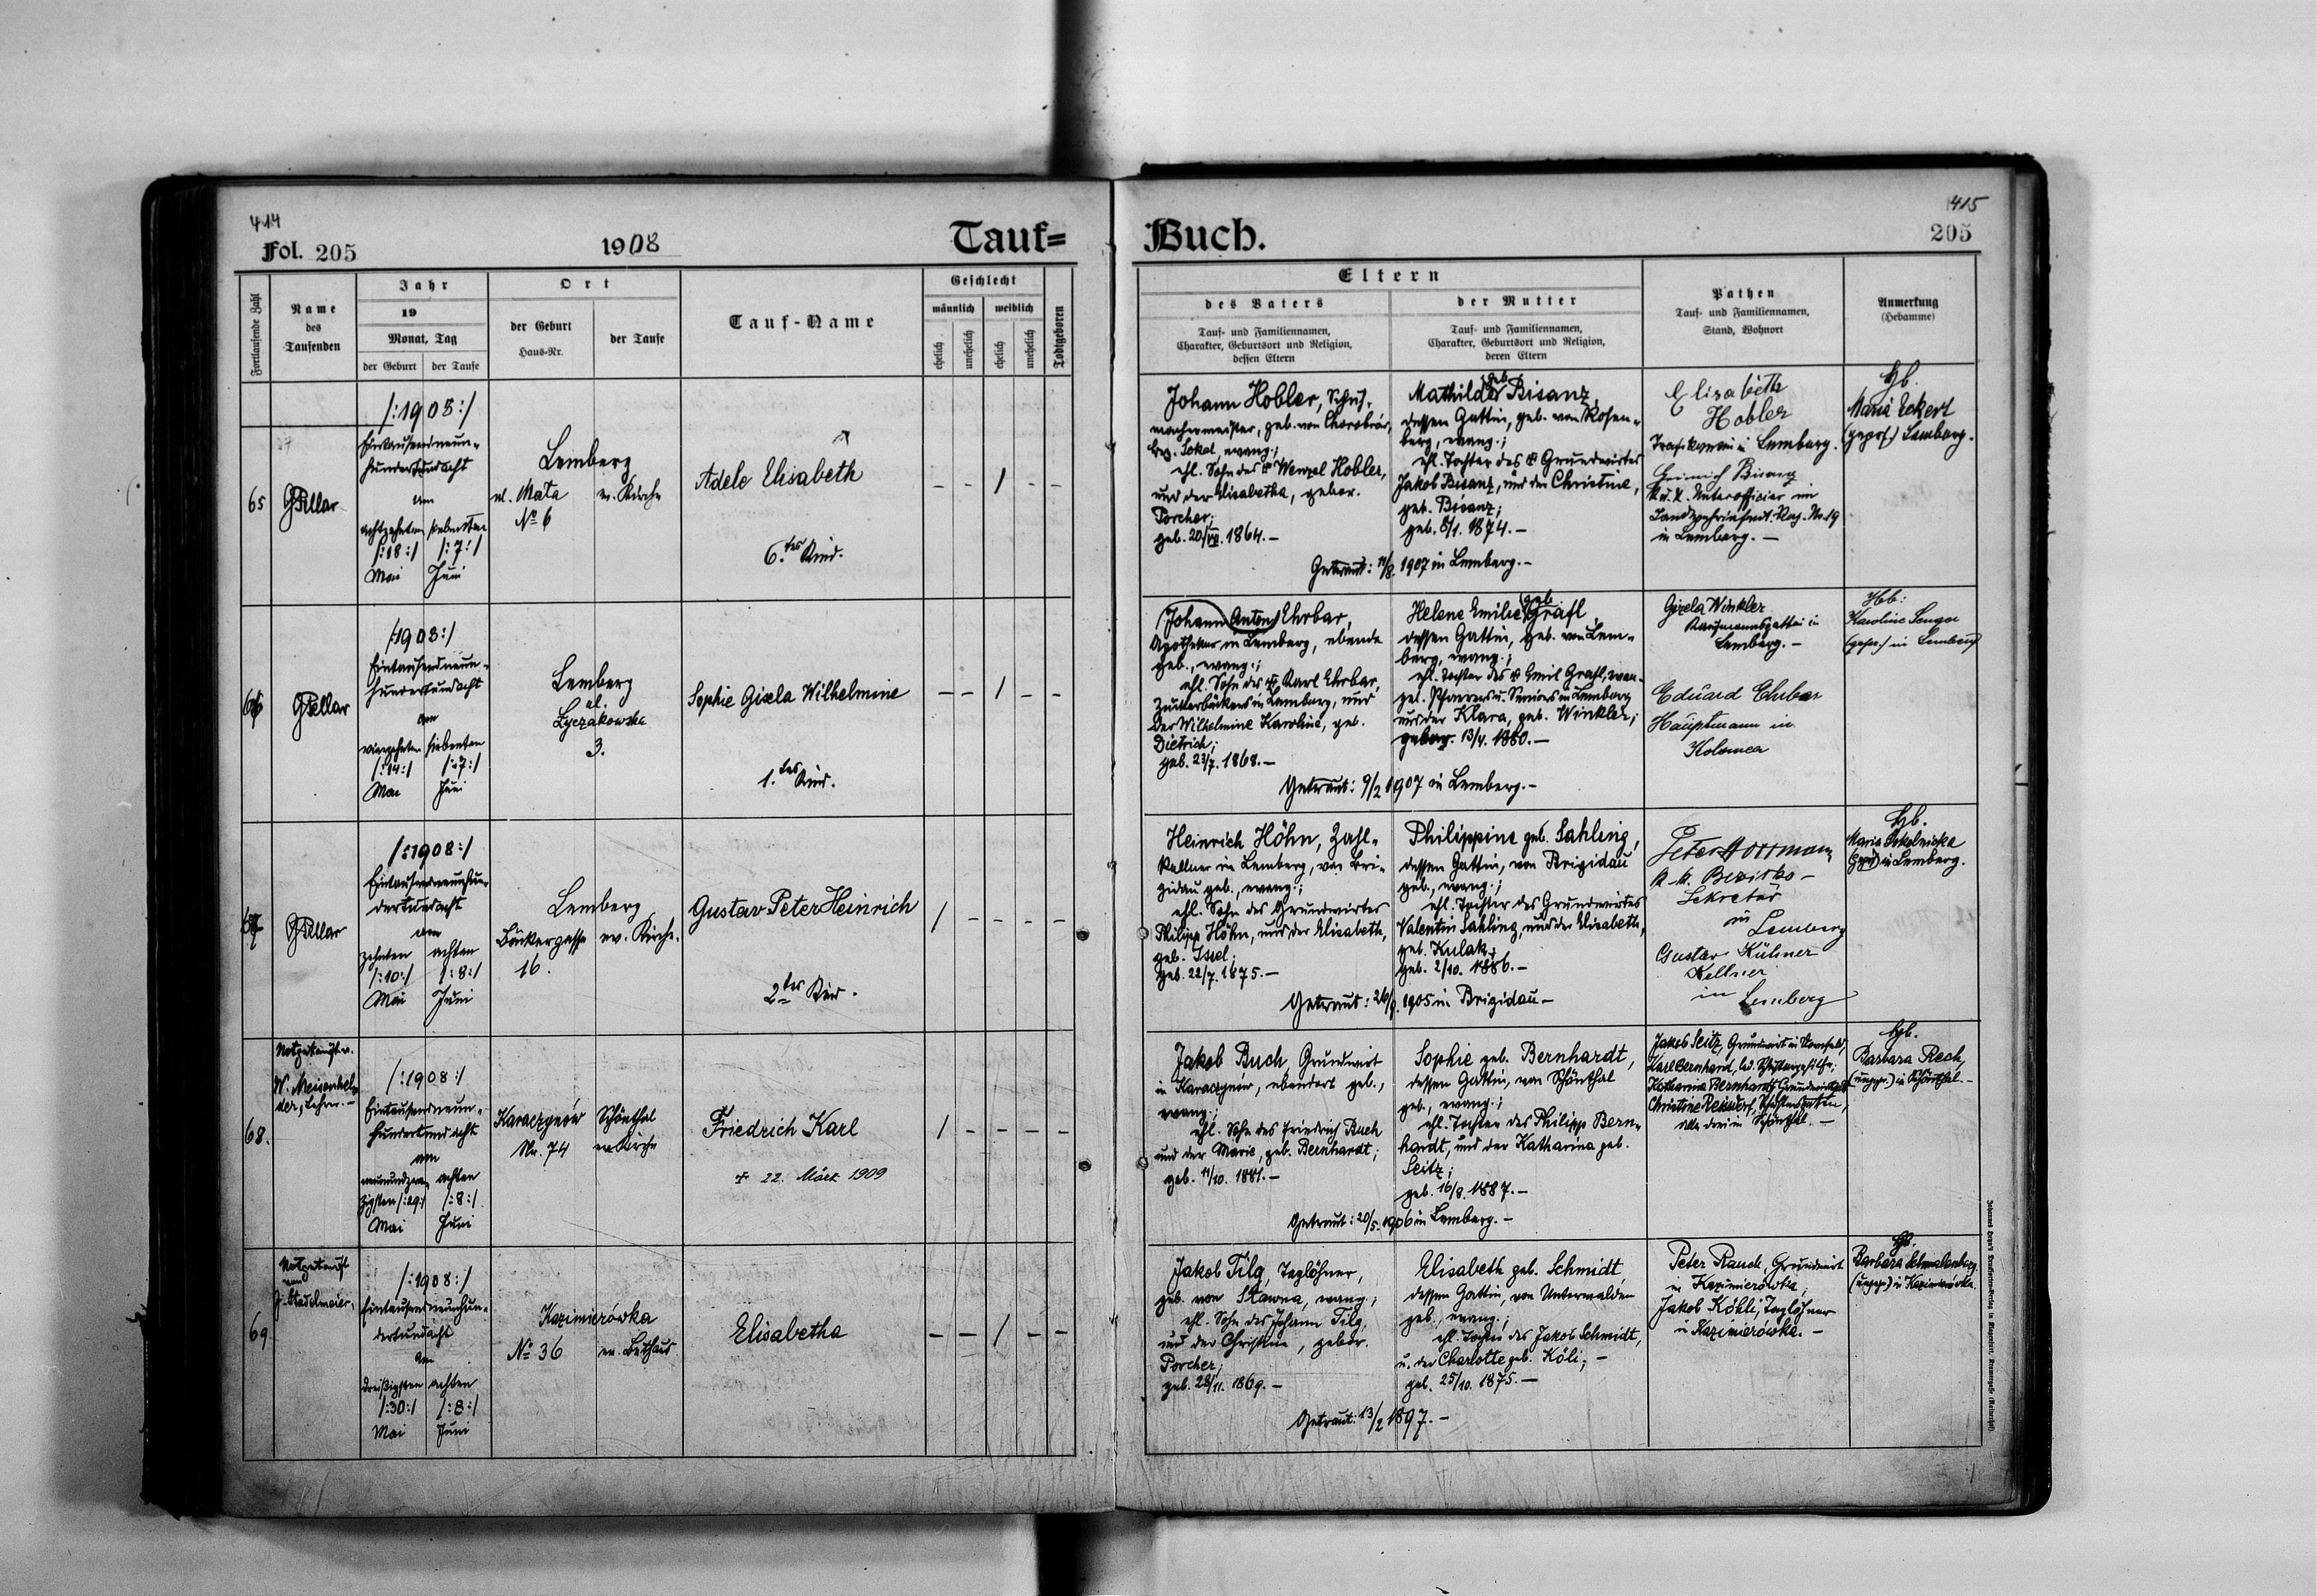 414
Fol. 205
1908
Tauf=
Buch.
415
205
Fortlaufende Zahl
Name
des
Taufenden
Jahr
19
Monat, Tag
der Geburt
der Taufe
Ort
der Geburt
Haus-Nr.
der Taufe
Tauf-Name
Geschlecht
männlich
weiblich
ehelich
unehelich
ehelich
unehelich
Todtgeboren
Eltern
des Vaters
Tauf- und Familiennamen,
Charakter, Geburtsort und Religion,
dessen Eltern
der Mutter
Tauf- und Familiennamen,
Charakter, Geburtsort und Religion,
deren Eltern
Pathen
Tauf- und Familiennamen,
Stand, Wohnort
Anmerkung
(Hebamme)
65
/:1908:/
Eintausendneun-
hundertundacht
am
achtzehnten
/:18:/
Mai
siebenten
/:7:/
Juni
Lemberg
ul. Mała
No 6
ev. Kirche
Adele Elisabeth
6.tes Kind.
- - / - -
Johann Hobler, Schuh-
machermeister, geb. von
Bez. Sokal, evang.;
ehl. Sohn des † Wenzel Hobler,
und der Elisabetha, gebor.
Porcher;
geb. 20/VII. 1864.-
Mathilde geb. Bisanz,
dessen Gattin, geb. von Rosen-
berg, evang.;
ehl. Tochter des † Grundwirtes
Jakob Bisanz, und der Christine,
geb. Bisanz;
geb. 8/1. 1874.-
Getraut: 11/8. 1907 in Lemberg.-
Elisabeth
Hobler
in Lemberg.
Heinrich Bisanz
k. k. Unterofficier im
Landwehrinfant. Reg. Nr. 19
in Lemberg.-
Hb.
Maria Eckert
(geprf.) Lemberg.
66
/:1908:/
Eintausendneun-
hundertundacht
am
vierzehnten
/:14:/
Mai
siebenten
/:7:/
Juni
Lemberg
ul.
Łyczakowska
3.
Sophie Gisela Wilhelmine
1.tes Kind.
- - / - -
Johann (Anton) Ehrbar,
Apotheker in Lemberg, ebenda
geb., evang.;
ehl. Sohn des † Karl Ehrbar,
Zuckerbäckers in Lemberg, und
der Wilhelmine Karoline, geb.
Dietrich;
geb. 23/7. 1868.-
Helene Emilie geb. Grafl,
dessen Gattin, geb. von Lem-
berg, evang.;
ehl. Tochter des † Emil Grafl, evan-
gel. Pfarrers u. Seniors in Lemberg
und der Klara, geb. Winkler;
gebor. 13/4. 1880.-
Getraut: 9/2 1907 in Lemberg.-
Gizela Winkler
Kaufmannsgattin in
Lemberg.-
Eduard Ehrbar
Hauptmann in
Kolomea
Hb:
Karoline
(geprf.) in Lemberg
67
/:1908:/
Eintausendneunhun-
dertundacht
am
zehnten
/:10:/
Mai
achten
/:8:/
Juni
Lemberg
Bäckergasse
16.
ev. Kirche.
Gustav Peter Heinrich
2tes Kind.
/ - - - -
Heinrich Höhn, Zahl-
kellner in Lemberg, von Bri-
gidau geb., evang.;
ehl. Sohn des Grundwirtes
Philipp Höhn, und der Elisabeth,
geb. Issel;
geb. 22/7. 1875.-
Philippine geb. Sahling,
dessen Gattin, von Brigidau
geb., evang.;
ehl. Tochter des Grundwirtes
Valentin Sahling, und der Elisabeth,
geb. Kulak;
geb. 2/10. 1886.-
Getraut: 26/ 1905 in Brigidau-
Peter
k. k. Bezirks-
Sekretär
in
Lemberg
Gustav Kühner
Kellner
in Lemberg
Hb.
Maria Sokolnicka
(gepr.) in Lemberg.
68.
Notgetauft v.
W. Meisenhel-
der, Lehrer.-
/:1908:/
Eintausendneun-
hundertundacht
am
neunundzwan-
zigsten /:29:/
Mai
achten
/:8:/
Juni
Karaczynów
Nr. 74
Schönthal
ev. Kirche
Friedrich Karl
† 22. März 1909
/ - - - -
Jakob Buch Grundwirt
in Karaczynów, ebendort geb.,
evang.;
ehl. Sohn des Friedrich Buch
und der Marie, geb. Bernhardt;
geb. 11/10. 1881.-
Sophie geb. Bernhardt,
dessen Gattin, von Schönthal
geb., evang.;
ehl. Tochter des Philipp Bern-
hardt, und der Katharina geb.
Seitz;
geb. 16/8. 1887.-
Getraut: 20/5. 1906 in Lemberg.-
Jakob Seitz, Grundwirt in
Karl Bernhard, led.
Katharina Bernhardt,
Christine
alle drei in Schönthal.-
Hb.
Barbara Rech,
(ungepr.) in Schönthal.-
69.
Notgetauft
von
J. Stadelmeier,
/:1908:/
Eintausendneunhun-
dertundacht
am
dreißigsten
/:30:/
Mai
achten
/:8:/
Juni
Kazimierówka
No 36
ev. Bethaus
Elisabetha
- - / - -
Jakob Filg, Taglöhner,
geb. von Stawna, evang.;
ehl. Sohn des Johann Filg,
und der Christine, gebor.
Porcher;
geb. 28/11. 1869.-
Elisabeth geb. Schmidt
dessen Gattin, von Unterwalden
geb., evang.;
ehl. Tochter des Jakob Schmidt,
u. der Charlotte geb. Köli;-
geb. 25/10. 1875.-
Getraut: 13/2 1897.-
Peter Rauch, Grundwirt
in Kazimierówka,
Jakob Köhli, Taglöhner
in Kazimierówka.-
Hb.
Barbara Schmalenberg,
(ungepr.) in Kazimierówka.